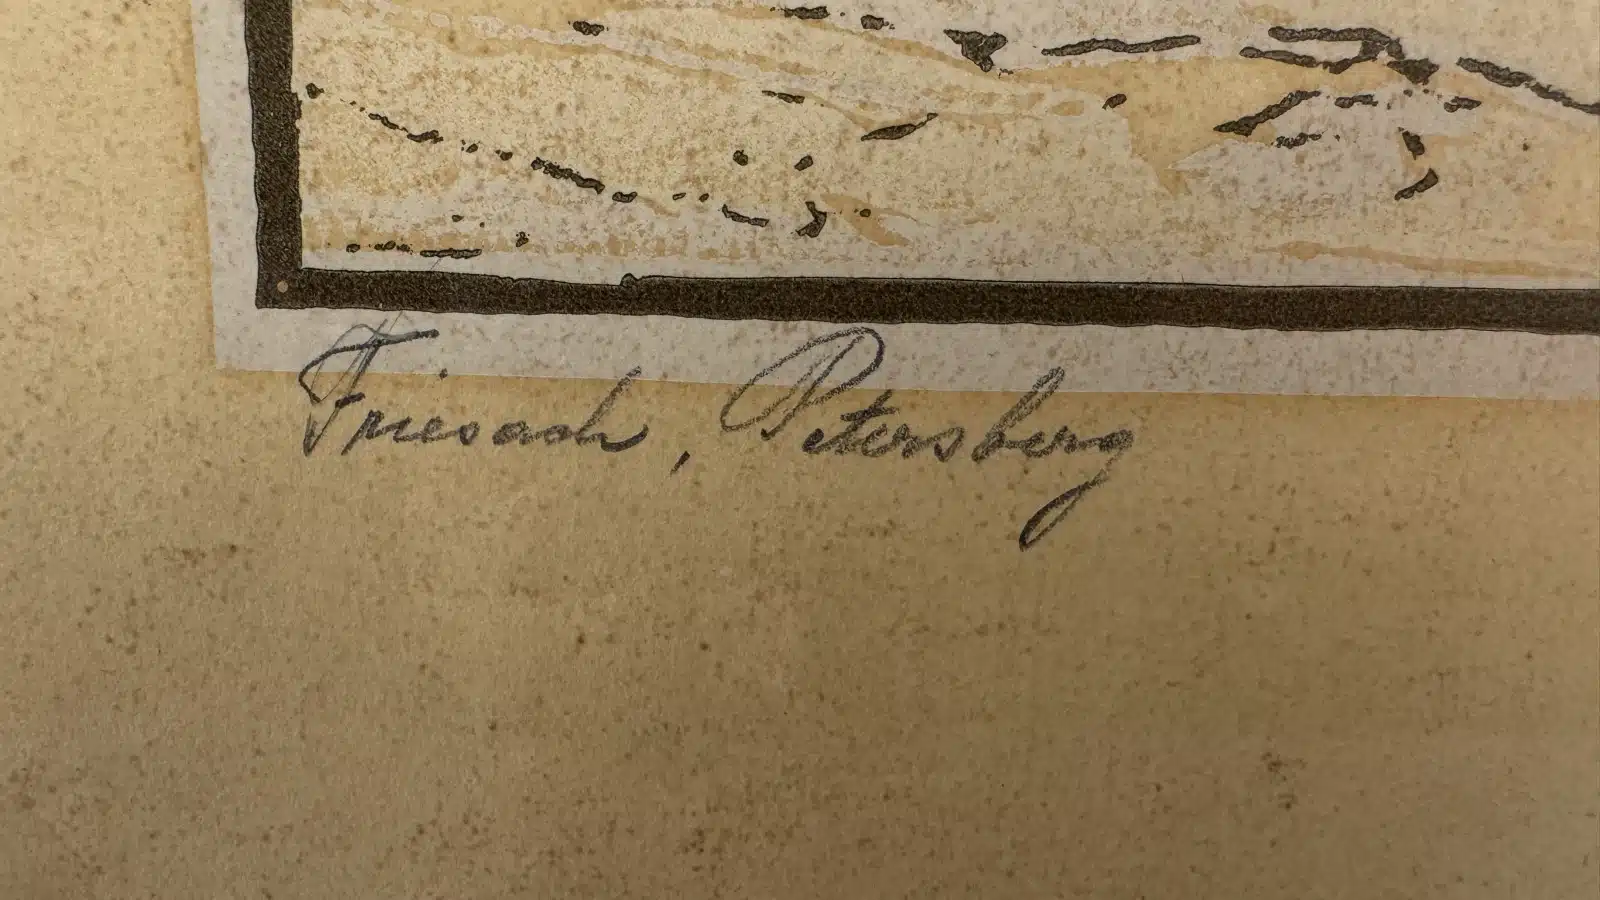 Friesach, Petersberg